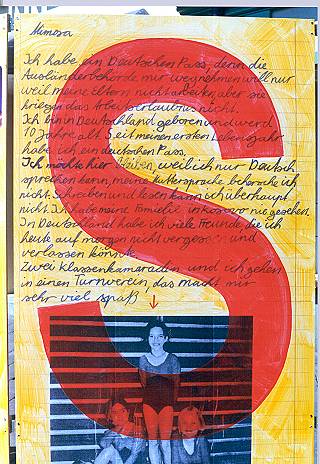 Mimosa
Ich habe ein Deutschen Pass, denn die
Ausländerbehörde mir wegnehmen will nur
weil meine Eltern nicht arbeiten, aber sie
kriegen das Arbeitserlaubnis nicht.
Ich bin in Deutschland geboren und werd
10 Jahre alt. Seit meinen ersten Lebensjahr
habe ich ein deutschen Pass.
Ich möchte hier bleiben, weil ich nur Deutsch
sprechen kann, meine Muttersprache behersche ich
nicht. Schreiben und lesen kann ich überhaupt
nicht. Ich habe meine Familie in Kosovo nie gesehen.
In Deutschland habe ich viele Freunde, die ich
heute auf morgen nicht vergessen und
verlassen könnte.
Zwei Klassenkameradin und ich gehen
in einen Turnverein, das macht mir
sehr viel spaß
S